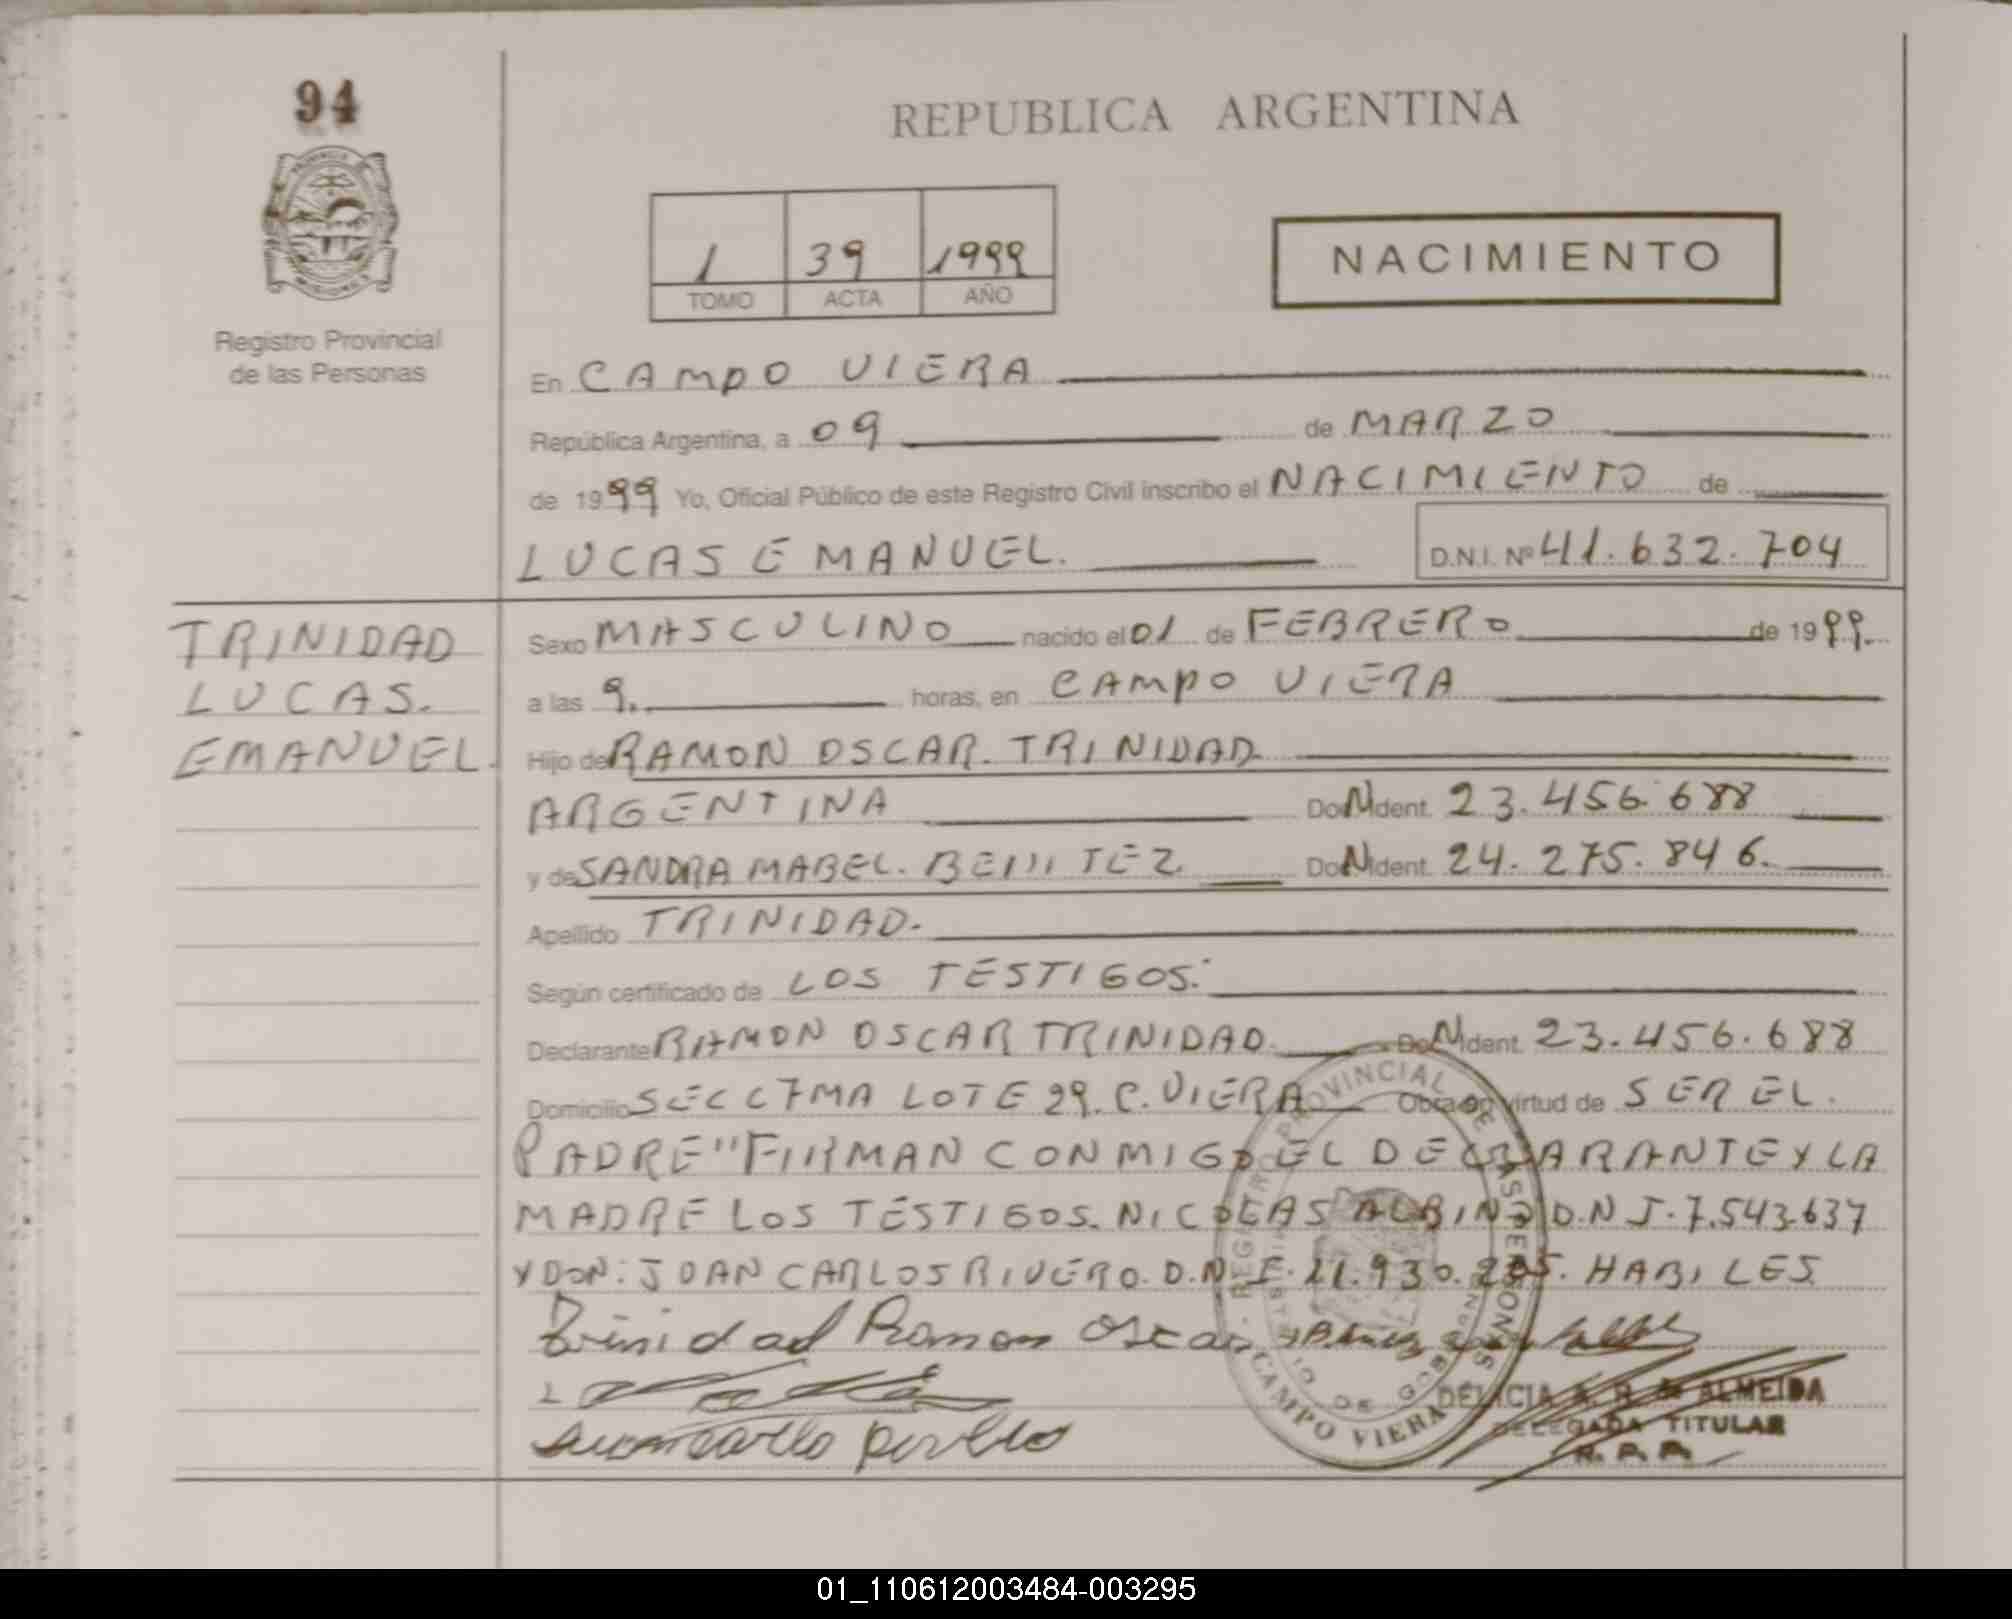 94
REPUBLICA ARGENTINA
1 39 1999
TOMO ACTA AÑO
NACIMIENTO
Registro Provincial
de las Personas
En CAMPO VIERA
República Argentina, a 09 de MARZO
de 1999 Yo, Oficial Público de este Registro Civil inscribo el NACIMIENTO de
LUCAS EMANUEL. D.N.I. Nº 41.632.704
TRINIDAD
LUCAS.
EMANUEL.
Sexo MASCULINO nacido el 01 de FEBRERO de 1999.
a las 9. horas, en CAMPO VIERA
Hijo de RAMON OSCAR. TRINIDAD
ARGENTINA Do N Ident. 23.456.688
y de SANDRA MABEL. BENITEZ Do N Ident. 24.275.846.
Apellido TRINIDAD.
Según certificado de LOS TESTIGOS.
Declarante RAMON OSCAR TRINIDAD. Do N Ident. 23.456.688
Domicilio SECC 7MA LOTE 29. C. VIERA Obra en virtud de SER EL.
PADRE "FIRMAN CONMIGO EL DECLARANTE Y LA
MADRE LOS TESTIGOS. NICOLAS ALBINO D.N.I. 7.543.637
Y DON: JUAN CARLOS RIVERO. D.N.I. 11.930.205. HABILES
Trinidad Ramon Oscar
REGISTRO PROVINCIAL DE LAS PERSONAS
MINISTERIO DE GOBIERNO
CAMPO VIERA
DELICIA A. R. de ALMEIDA
DELEGADA TITULAR
01_110612003484-003295